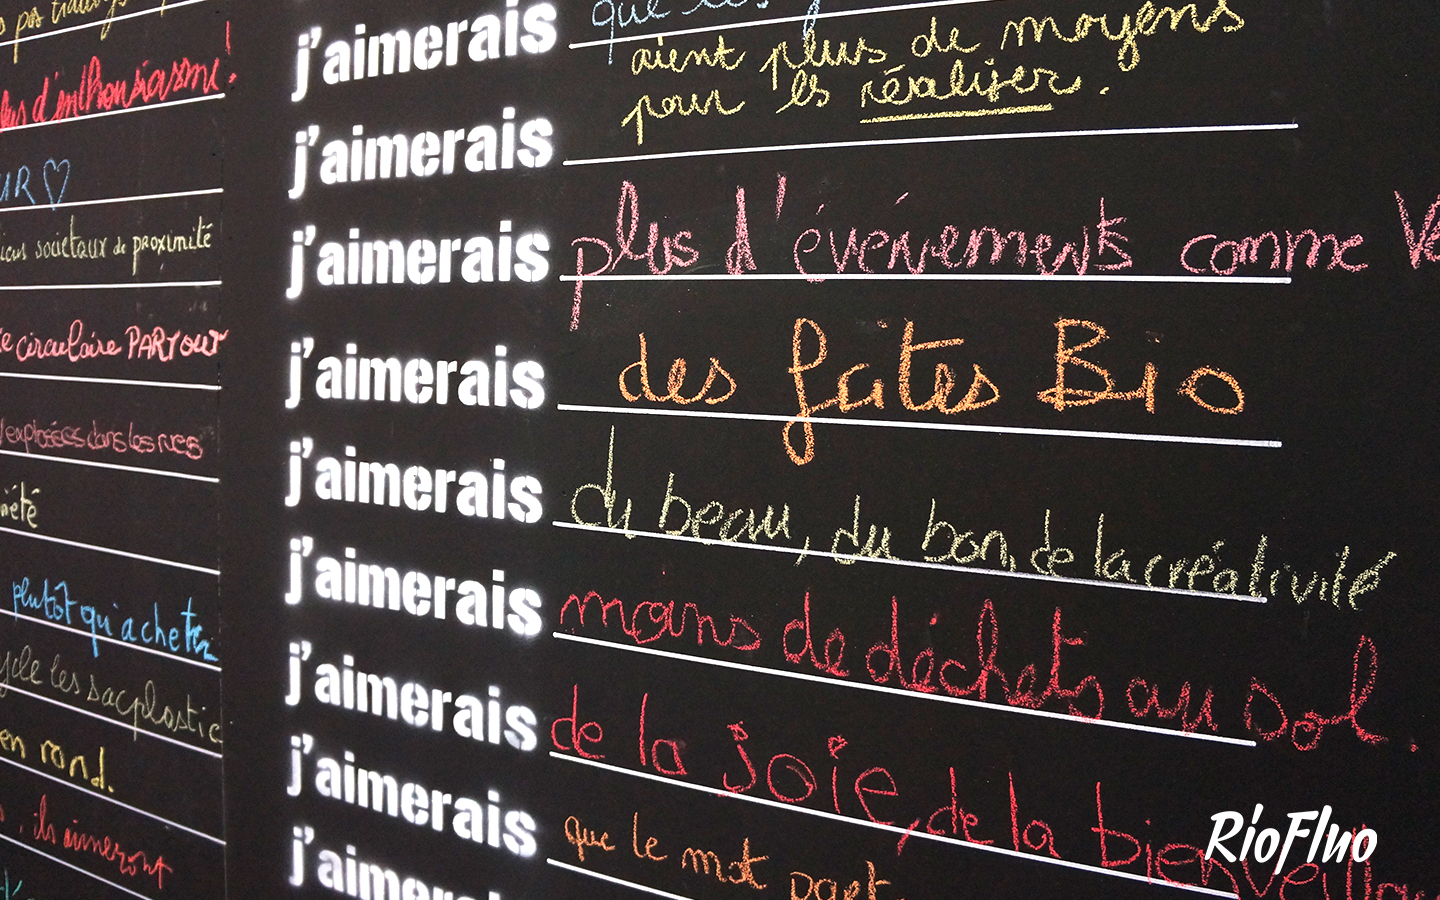 d'enthousiasme!
UR ♡
societaux de proximité
circulaire PARTOUT
explosées dans les rues
plutôt qu'acheter
les sac plastic
en rond.
, ils aimeront
j'aimerais que les
aient plus de moyens
pour les réaliser.
j'aimerais
j'aimerais plus d'événements comme
j'aimerais des faites Bio
j'aimerais du beau, du bon, de la créativité
j'aimerais moins de déchets au sol.
j'aimerais de la joie, de la
j'aimerais que le mot part
j'aimerais
RioFluo